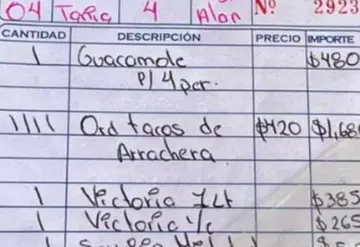 04 Tania 4 Alan Nº 2923
CANTIDAD DESCRIPCIÓN PRECIO IMPORTE
1 Guacamole $480
p/ 4 per.
1111 Ord tacos de $420 $1,680
Arrachera
1 Victoria 1Lt $385
1 Victoria $265
1